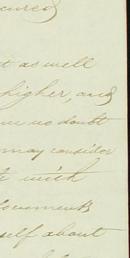 cured
t as well
higher, and
no doubt
may consider
with
self about